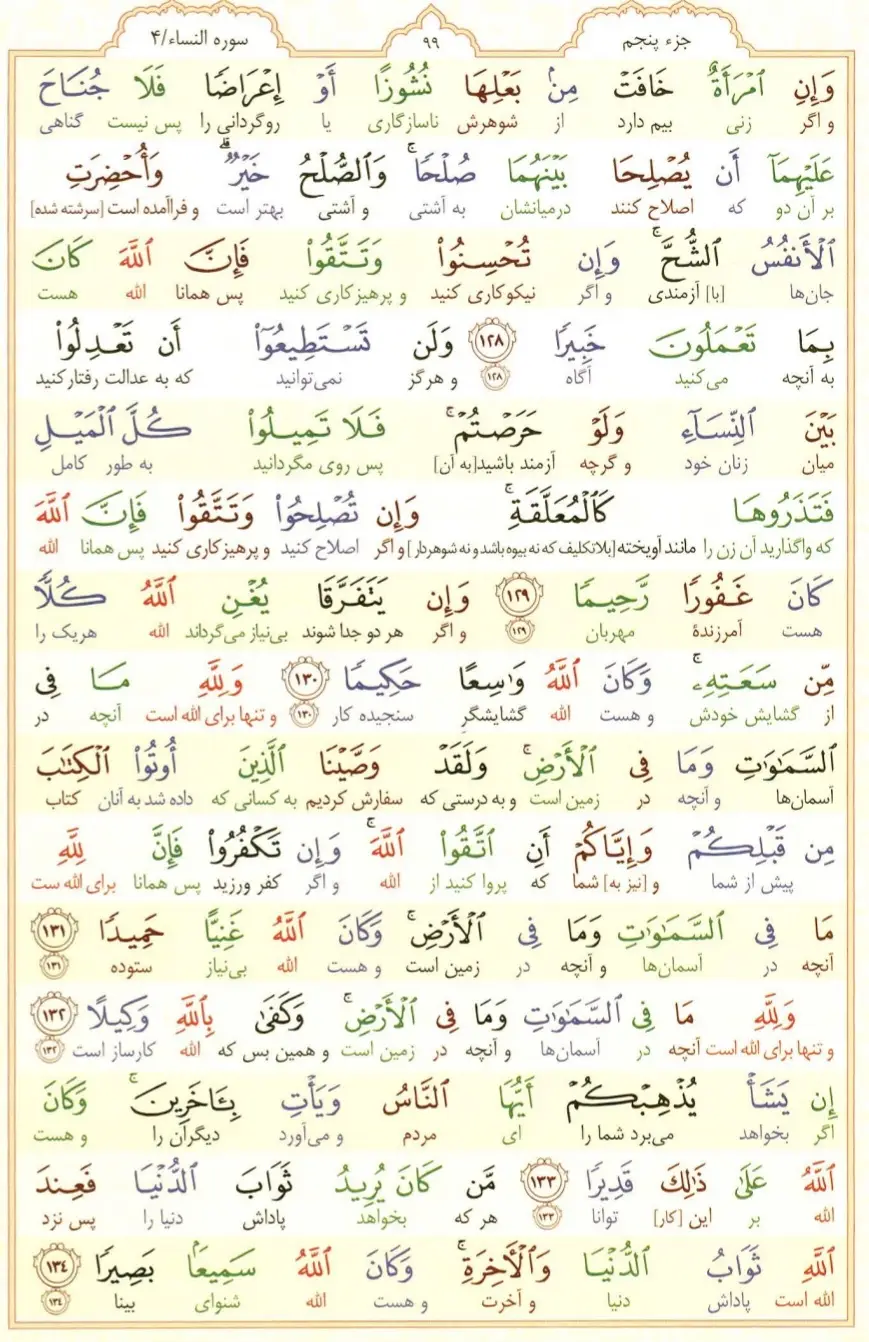 جزء پنجم ۹۹ سوره النساء/۴
وَإِنِ ٱمْرَأَةٌ خَافَتْ مِنۢ بَعْلِهَا نُشُوزًا أَوْ إِعْرَاضًا فَلَا جُنَاحَ
و اگر زنی بیم دارد از شوهرش ناسازگاری یا روگردانی را پس نیست گناهی
عَلَيْهِمَآ أَن يُصْلِحَا بَيْنَهُمَا صُلْحًا ۚ وَٱلصُّلْحُ خَيْرٌ ۗ وَأُحْضِرَتِ
بر آن دو که اصلاح کنند درمیانشان به آشتی و آشتی بهتر است و فراآمده است [سرشته شده]
ٱلْأَنفُسُ ٱلشُّحَّ ۚ وَإِن تُحْسِنُوا۟ وَتَتَّقُوا۟ فَإِنَّ ٱللَّهَ كَانَ
جان‌ها [با] آزمندی و اگر نیکوکاری کنید و پرهیزکاری کنید پس همانا الله هست
بِمَا تَعْمَلُونَ خَبِيرًا ۱۲۸ وَلَن تَسْتَطِيعُوٓا۟ أَن تَعْدِلُوا۟
به آنچه می‌کنید آگاه ۱۲۸ و هرگز نمی‌توانید که به عدالت رفتارکنید
بَيْنَ ٱلنِّسَآءِ وَلَوْ حَرَصْتُمْ ۖ فَلَا تَمِيلُوا۟ كُلَّ ٱلْمَيْلِ
میان زنان خود و گرچه آزمند باشید[به آن] پس روی مگردانید به طور کامل
فَتَذَرُوهَا كَٱلْمُعَلَّقَةِ ۚ وَإِن تُصْلِحُوا۟ وَتَتَّقُوا۟ فَإِنَّ ٱللَّهَ
که واگذارید آن زن را مانند آویخته[بلاتکلیف که نه بیوه باشد و نه شوهردار] و اگر اصلاح کنید و پرهیزکاری کنید پس همانا الله
كَانَ غَفُورًا رَّحِيمًا ۱۲۹ وَإِن يَتَفَرَّقَا يُغْنِ ٱللَّهُ كُلًّا
هست آمرزندهٔ مهربان ۱۲۹ و اگر هر دو جدا شوند بی‌نیاز می‌گرداند الله هریک را
مِّن سَعَتِهِۦ ۚ وَكَانَ ٱللَّهُ وَٰسِعًا حَكِيمًا ۱۳۰ وَلِلَّهِ مَا فِى
از گشایش خودش و هست الله گشایشگر سنجیده کار ۱۳۰ و تنها برای الله است آنچه در
ٱلسَّمَٰوَٰتِ وَمَا فِى ٱلْأَرْضِ ۗ وَلَقَدْ وَصَّيْنَا ٱلَّذِينَ أُوتُوا۟ ٱلْكِتَٰبَ
آسمان‌ها و آنچه در زمین است و به درستی که سفارش کردیم به کسانی که داده شد به آنان کتاب
مِن قَبْلِكُمْ وَإِيَّاكُمْ أَنِ ٱتَّقُوا۟ ٱللَّهَ ۚ وَإِن تَكْفُرُوا۟ فَإِنَّ لِلَّهِ
پیش از شما و [نیز به] شما که پروا کنید از الله و اگر کفر ورزید پس همانا برای الله ست
مَا فِى ٱلسَّمَٰوَٰتِ وَمَا فِى ٱلْأَرْضِ ۚ وَكَانَ ٱللَّهُ غَنِيًّا حَمِيدًا ۱۳۱
آنچه در آسمان‌ها و آنچه در زمین است و هست الله بی‌نیاز ستوده ۱۳۱
وَلِلَّهِ مَا فِى ٱلسَّمَٰوَٰتِ وَمَا فِى ٱلْأَرْضِ ۚ وَكَفَىٰ بِٱللَّهِ وَكِيلًا ۱۳۲
و تنها برای الله است آنچه در آسمان‌ها و آنچه در زمین است و همین بس که الله کارساز است ۱۳۲
إِن يَشَأْ يُذْهِبْكُمْ أَيُّهَا ٱلنَّاسُ وَيَأْتِ بِـَٔاخَرِينَ ۚ وَكَانَ
اگر بخواهد می‌برد شما را ای مردم و می‌آورد دیگران را و هست
ٱللَّهُ عَلَىٰ ذَٰلِكَ قَدِيرًا ۱۳۳ مَّن كَانَ يُرِيدُ ثَوَابَ ٱلدُّنْيَا فَعِندَ
الله بر این [کار] توانا ۱۳۳ هر که بخواهد پاداش دنیا را پس نزد
ٱللَّهِ ثَوَابُ ٱلدُّنْيَا وَٱلْـَٔاخِرَةِ ۚ وَكَانَ ٱللَّهُ سَمِيعًۢا بَصِيرًا ۱۳۴
الله است پاداش دنیا و آخرت و هست الله شنوای بینا ۱۳۴